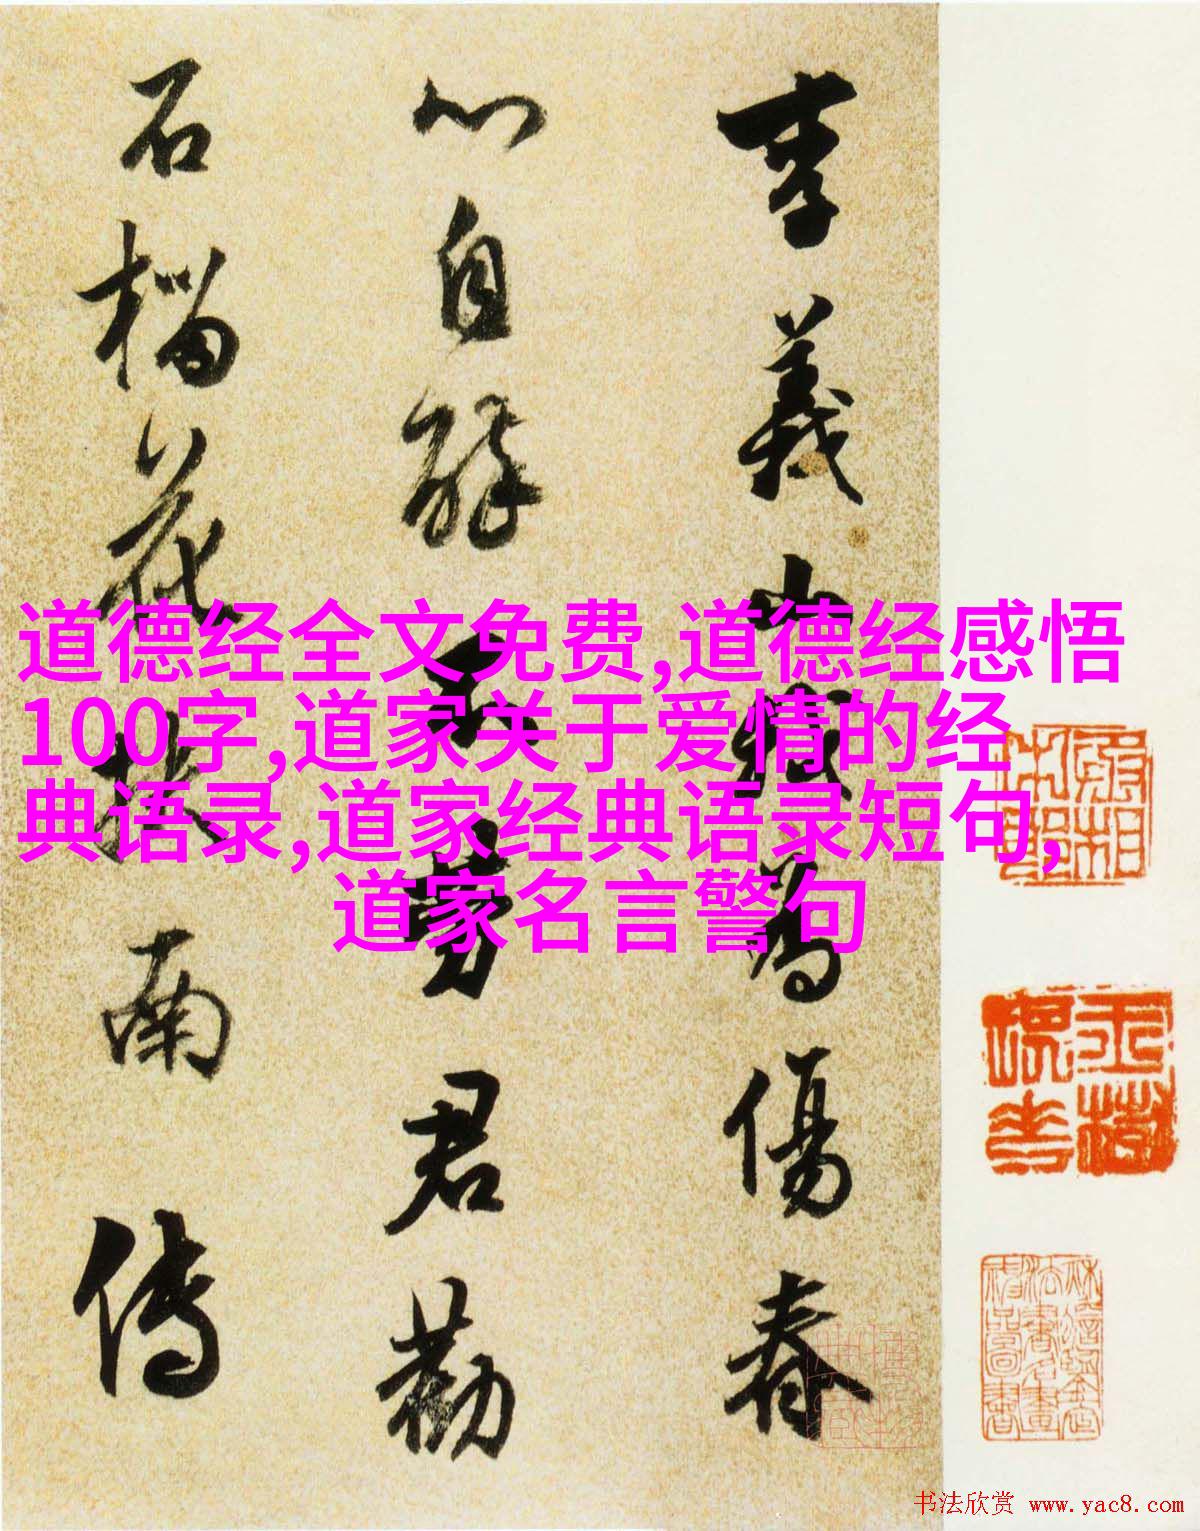 李義山我為傷春
心自醉不勞君勸
石榴花扶南傳
道德经全文免费,道德经感悟
100字,道家关于爱情的经
典语录,道家经典语录短句,
道家名言警句
书法欣赏 www.yac8.com